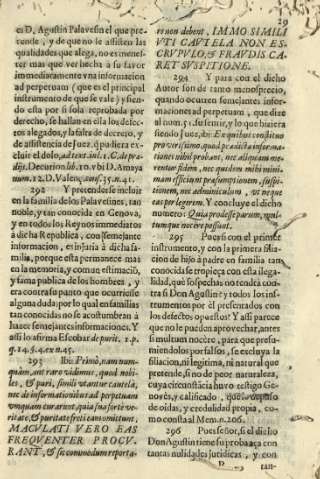 29
es D. Agustin Palavesin el que pre-
tende, y de que no le assisten las
qualidades que alega, no es menes-
ter mas que ver hecha a su favor
immediatamente vna informacion
ad perpetuam (que es el principal
instrumento de que se vale) y sien-
do esta por si sola reprobada por
derecho, se hallan en ella los defe-
ctos alegados, y la falta de decreto, y
de assistencia de Juez, q̃ pudiera ex-
cluir el dolo, ad text. in l. 1. C. de præ-
dijs. Decurion. lib. 10. vbi D. Amaya
num. 12. D. Valenç. conf. 35. n. 41.
292 Y pretendese incluir
en la familia de los Palavesines, tan
noble, y tan conocida en Genova,
y en todos los Reynos immediatos
à dicha Republica, con semejante
informacion, es injuria à dicha fa-
milia, porque esta permanece mas
en la memoria, y comun estimació,
y fama publica de los hombres, y
era contra su punto que ocurriesse
alguna duda; por lo qual en familias
tan conocidas no se acostumbran à
hazer semejantes informaciones. Y
assi lo afirma Escobar de purit. 1. p.
q. 14. §. 4. ex n. 45.
293 Ibi: Primò, nam num-
quàm, aut rarò vidimus, quod nobi-
les, & puri, simili vtantur cautela,
nec de informationibus ad perpetuam
vnquam curarunt, quia sua forte ve-
ritate, & puritate freti eas omittunt,
MACULATI VERO EAS
FREQVENTER PROCV-
RANT, & sic commodum reporta-
re non debent, IMMO SIMILI
VTI CAVTELA NON ES-
CRVPULO, & FRAVDIS CA-
RET SVSPITIONE.
294 Y para con el dicho
Autor son de tanto menosprecio,
quando ocurren semejantes infor-
maciones ad perpetuam, que dize
al num. 5. las sustituir, y lo que hiziera
siendo Juez, ibi: Ex quibus constitui
pro verissimo, quod prædicta informa-
tiones nihil probant, nec aliquam me-
rentur fidem, nec quidem mihi mini-
mam efficiunt præsumptionem, suspi-
tionem, nec adminiculum, vt neque
eas per legerem. Y concluye el dicho
numero: Quia prodesse parum, quin-
tumque nocere possunt.
295 Pues si con el primer
instrumento, y con la primera filia-
cion de hijo à padre en familia tan
conocida se tropieça con esta ilega-
lidad, què sospechas no tendrà con-
tra si Don Agustin? y todos los ins-
trumentos por èl presentados con
los defectos opuestos? Y assi parece
que no le pueden aprovechar, antes
si multum nocere, para que presu-
miendolos por falsos, se excluya la
filiacion, ni si legitima, ni natural que
pretende, si no de peor naturaleza,
cuya circunstãcia huvo testigo Ge-
novès, y calificado, que depuso
de oìdas, y credulidad propia, co-
mo consta al Mem. n. 206.
296 Pues señor, si el dicho
Don Agustin tiene su probança con
tantas nulidades juridicas, y con
D
tan-